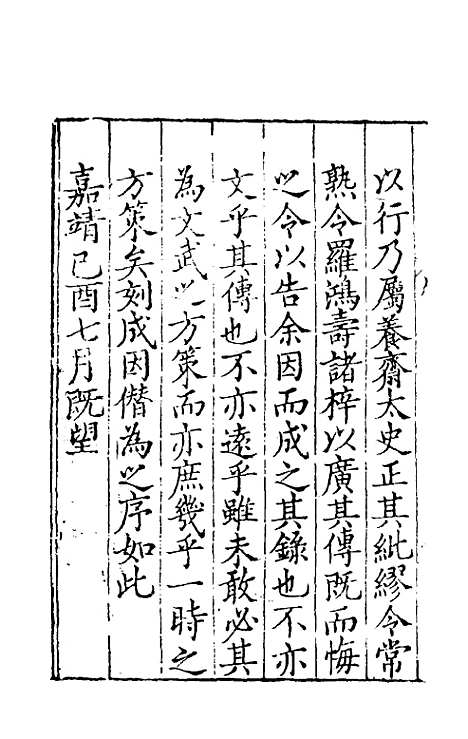 以行乃屬養齋太史正其紕繆令常
熟令羅鴻壽諸梓以廣其傳既而悔
之令以告余因而成之其錄也不亦
文乎其傳也不亦遠乎雖未敢必其
為文武之方策而亦庶幾乎一時之
方策矣刻成因僣為之序如此
嘉靖己酉七月既望